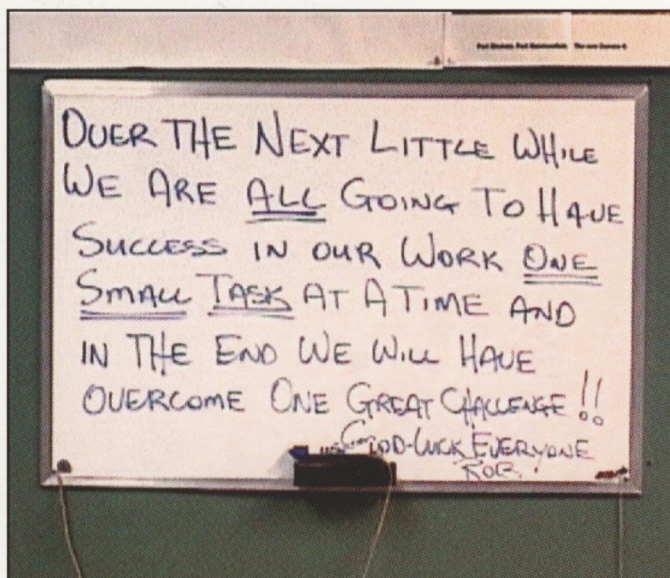 OVER THE NEXT LITTLE WHILE
WE ARE ALL GOING TO HAVE
SUCCESS IN OUR WORK ONE
SMALL TASK AT A TIME AND
IN THE END WE WILL HAVE
OVERCOME ONE GREAT CHALLENGE!!
GOOD-LUCK EVERYONE
ROB